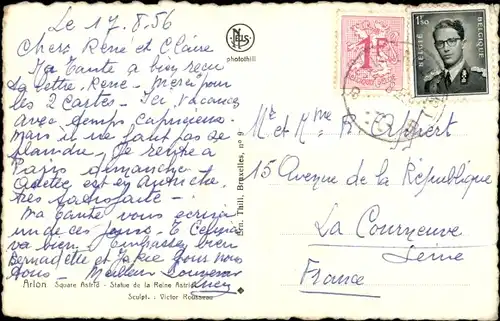 Le 17.8.56
Chers René et Claire
Ma Tante a bien reçu
la lettre. René - Merci pour
les 2 Cartes - Ici, Vacances
avec temps Capricieux.
Mais il ne faut pas se
plaindre, Je rentre à
Paris dimanche.
est en Autriche,
très satisfaite -
Ma Tante vous écrira
un de ces jours -
va bien. Embrassez bien
Bernadette et pour nous
tous - Meilleur Souvenir
Lucy
Arlon Square Astrid - Statue de la Reine Astrid
Sculpt. : Victor Rousseau
Nels
photothill
Ern. Thill, Bruxelles, nº 9
1F
1F50
BELGIE BELGIQUE
Mr et Mme R.
15 Avenue de la République
La Courneuve
Seine
France